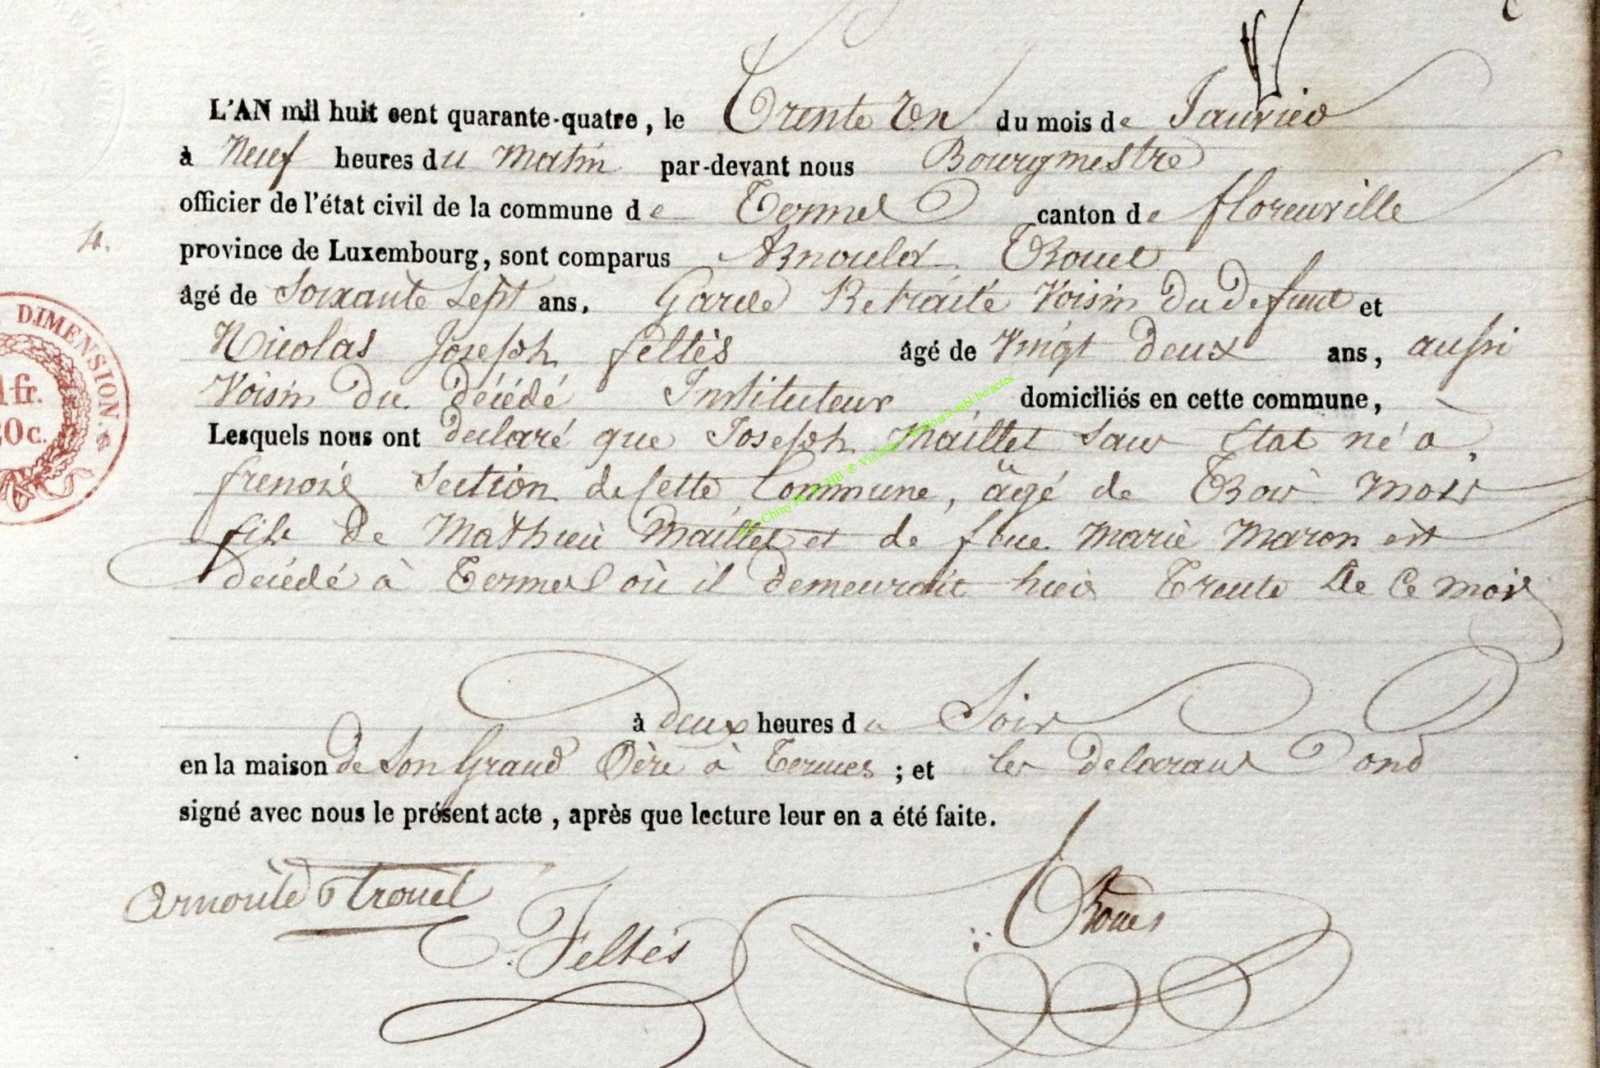 L'AN mil huit cent quarante-quatre, le Trente Un du mois de Janvier
à Neuf heures du Matin par-devant nous Bourgmestre
officier de l'état civil de la commune de Termes canton de florenville
4.
province de Luxembourg, sont comparus Arnould Trouet
âgé de Soixante Sept ans, Garde Retraité Voisin Du Defunt et
Nicolas Joseph feltès âgé de Vingt deux ans, aussi
Voisin Du décédé Instituteur domiciliés en cette commune,
Lesquels nous ont declaré que Joseph Maillet Sans Etat né à
frenois Section de Cette Commune, âgé de Trois mois
fils de Mathieu Maillet et de feue Marie Maron est
décédé à Termes où il demeurait hier Trente de Ce mois
à deux heures du Soir
en la maison de Son Grand Père à Termes ; et les declarans Ond
signé avec nous le présent acte, après que lecture leur en a été faite.
Arnould Trouet
Feltés
DIMENSION.
1fr.
20c.